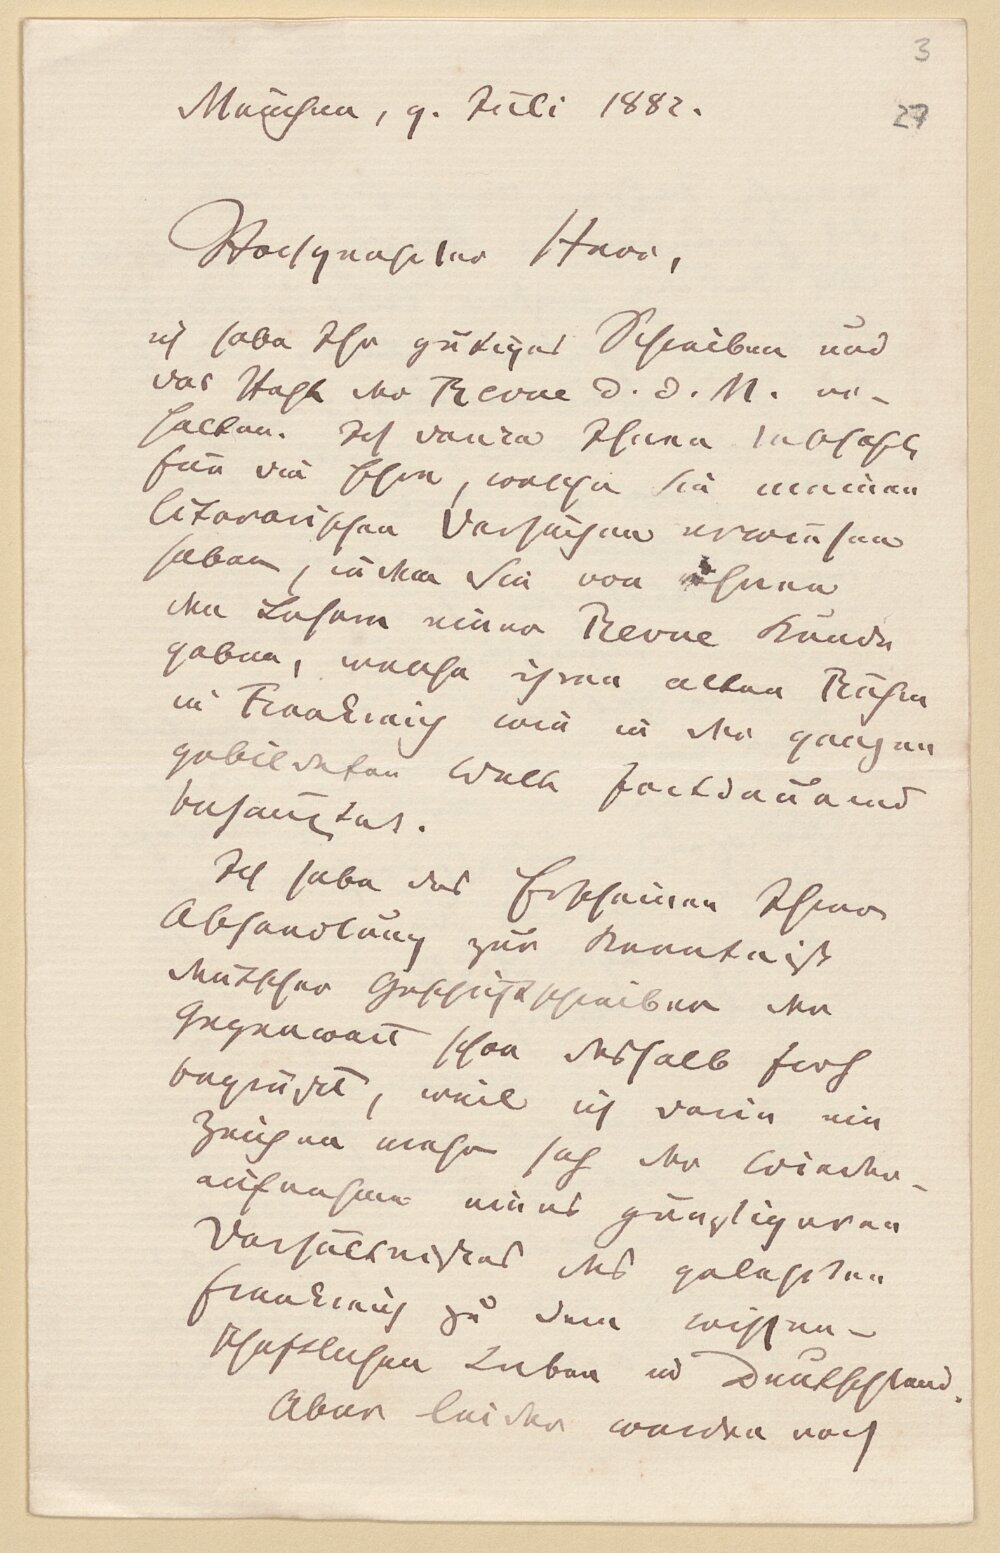 3
27
München, 9. Juli 1882.
Hochgeehrter Herr,
ich habe Ihr gütiges Schreiben und
das Heft der Revue d. d. M. er-
halten. Ich danke Ihnen lebhaft
für die Ehre, welche Sie meinen
literarischen Versuchen erwiesen
haben, indem Sie von ihnen
den Lesern einer Revue Kunde
gaben, welche ihren alten Ruhm
in Frankreich wie in der ganzen
gebildeten Welt fortdauernd
behauptet.
Ich habe das Erscheinen Ihrer
Abhandlung zur Kenntniß
deutscher Geschichtschreiber der
Gegenwart schon deshalb froh
begrüßt, weil ich darin ein
Zeichen mehr sah der Wieder-
aufnahme eines günstigeren
Verhältnisses des gelehrten
Frankreich zu dem wissen-
schaftlichen Leben in Deutschland.
Aber leider werden noch